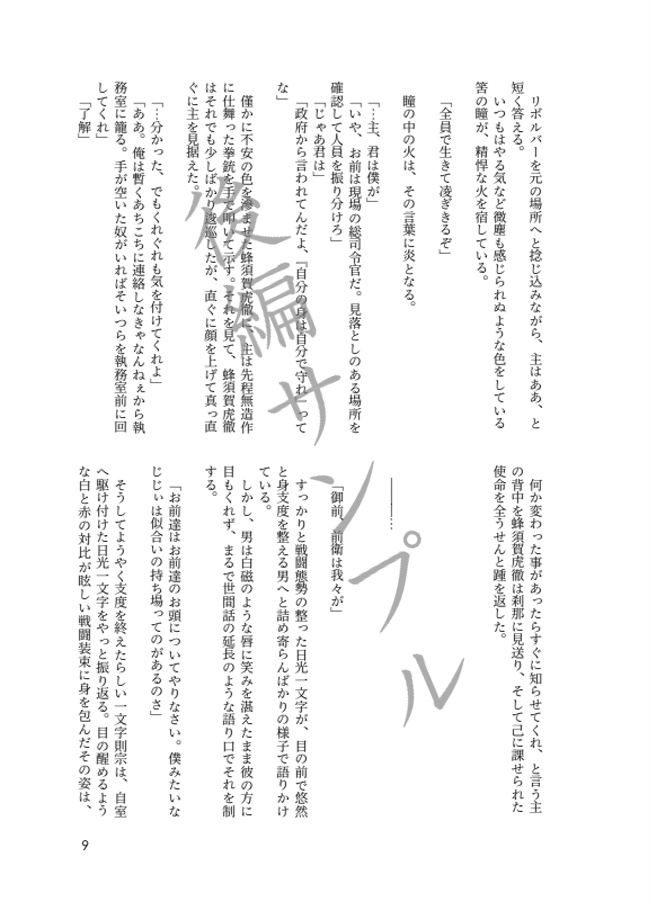 リボルバーを元の場所へと捻じ込みながら、主はああ、と
短く答える。
いつもはやる気など微塵も感じられぬような色をしている
筈の瞳が、精悍な火を宿している。
「全員で生きて凌ぎきるぞ」
瞳の中の火は、その言葉に炎となる。
「…主、君は僕が」
「いや、お前は現場の総司令官だ。見落としのある場所を
確認して人員を振り分けろ」
「じゃあ君は」
「政府から言われてんだよ、『自分の身は自分で守れ』って
な」
僅かに不安の色を滲ませた蜂須賀虎徹に、主は先程無造作
に仕舞った拳銃を手で叩いて示す。それを見て、蜂須賀虎徹
はそれでも少しばかり逡巡したが、直ぐに顔を上げて真っ直
ぐに主を見据えた。
「…分かった、でもくれぐれも気を付けてくれよ」
「ああ。俺は暫くあちこちに連絡しなきゃなんねぇから執
務室に籠る。手が空いた奴がいればそいつらを執務室前に回
してくれ」
「了解」
何か変わった事があったらすぐに知らせてくれ、と言う主
の背中を蜂須賀虎徹は刹那に見送り、そして己に課せられた
使命を全うせんと踵を返した。
――――…
「御前、前衛は我々が」
すっかりと戦闘態勢の整った日光一文字が、目の前で悠然
と身支度を整える男へと詰め寄らんばかりの様子で語りかけ
ている。
しかし、男は白磁のような唇に笑みを湛えたまま彼の方に
目もくれず、まるで世間話の延長のような語り口でそれを制
する。
「お前達はお前達のお頭についてやりなさい。僕みたいな
じじぃは似合いの持ち場ってのがあるのさ」
そうしてようやく支度を終えたらしい一文字則宗は、自室
へ駆け付けた日光一文字をやっと振り返る。目の醒めるよう
な白と赤の対比が眩しい戦闘装束に身を包んだその姿は、
9
後編サンプル